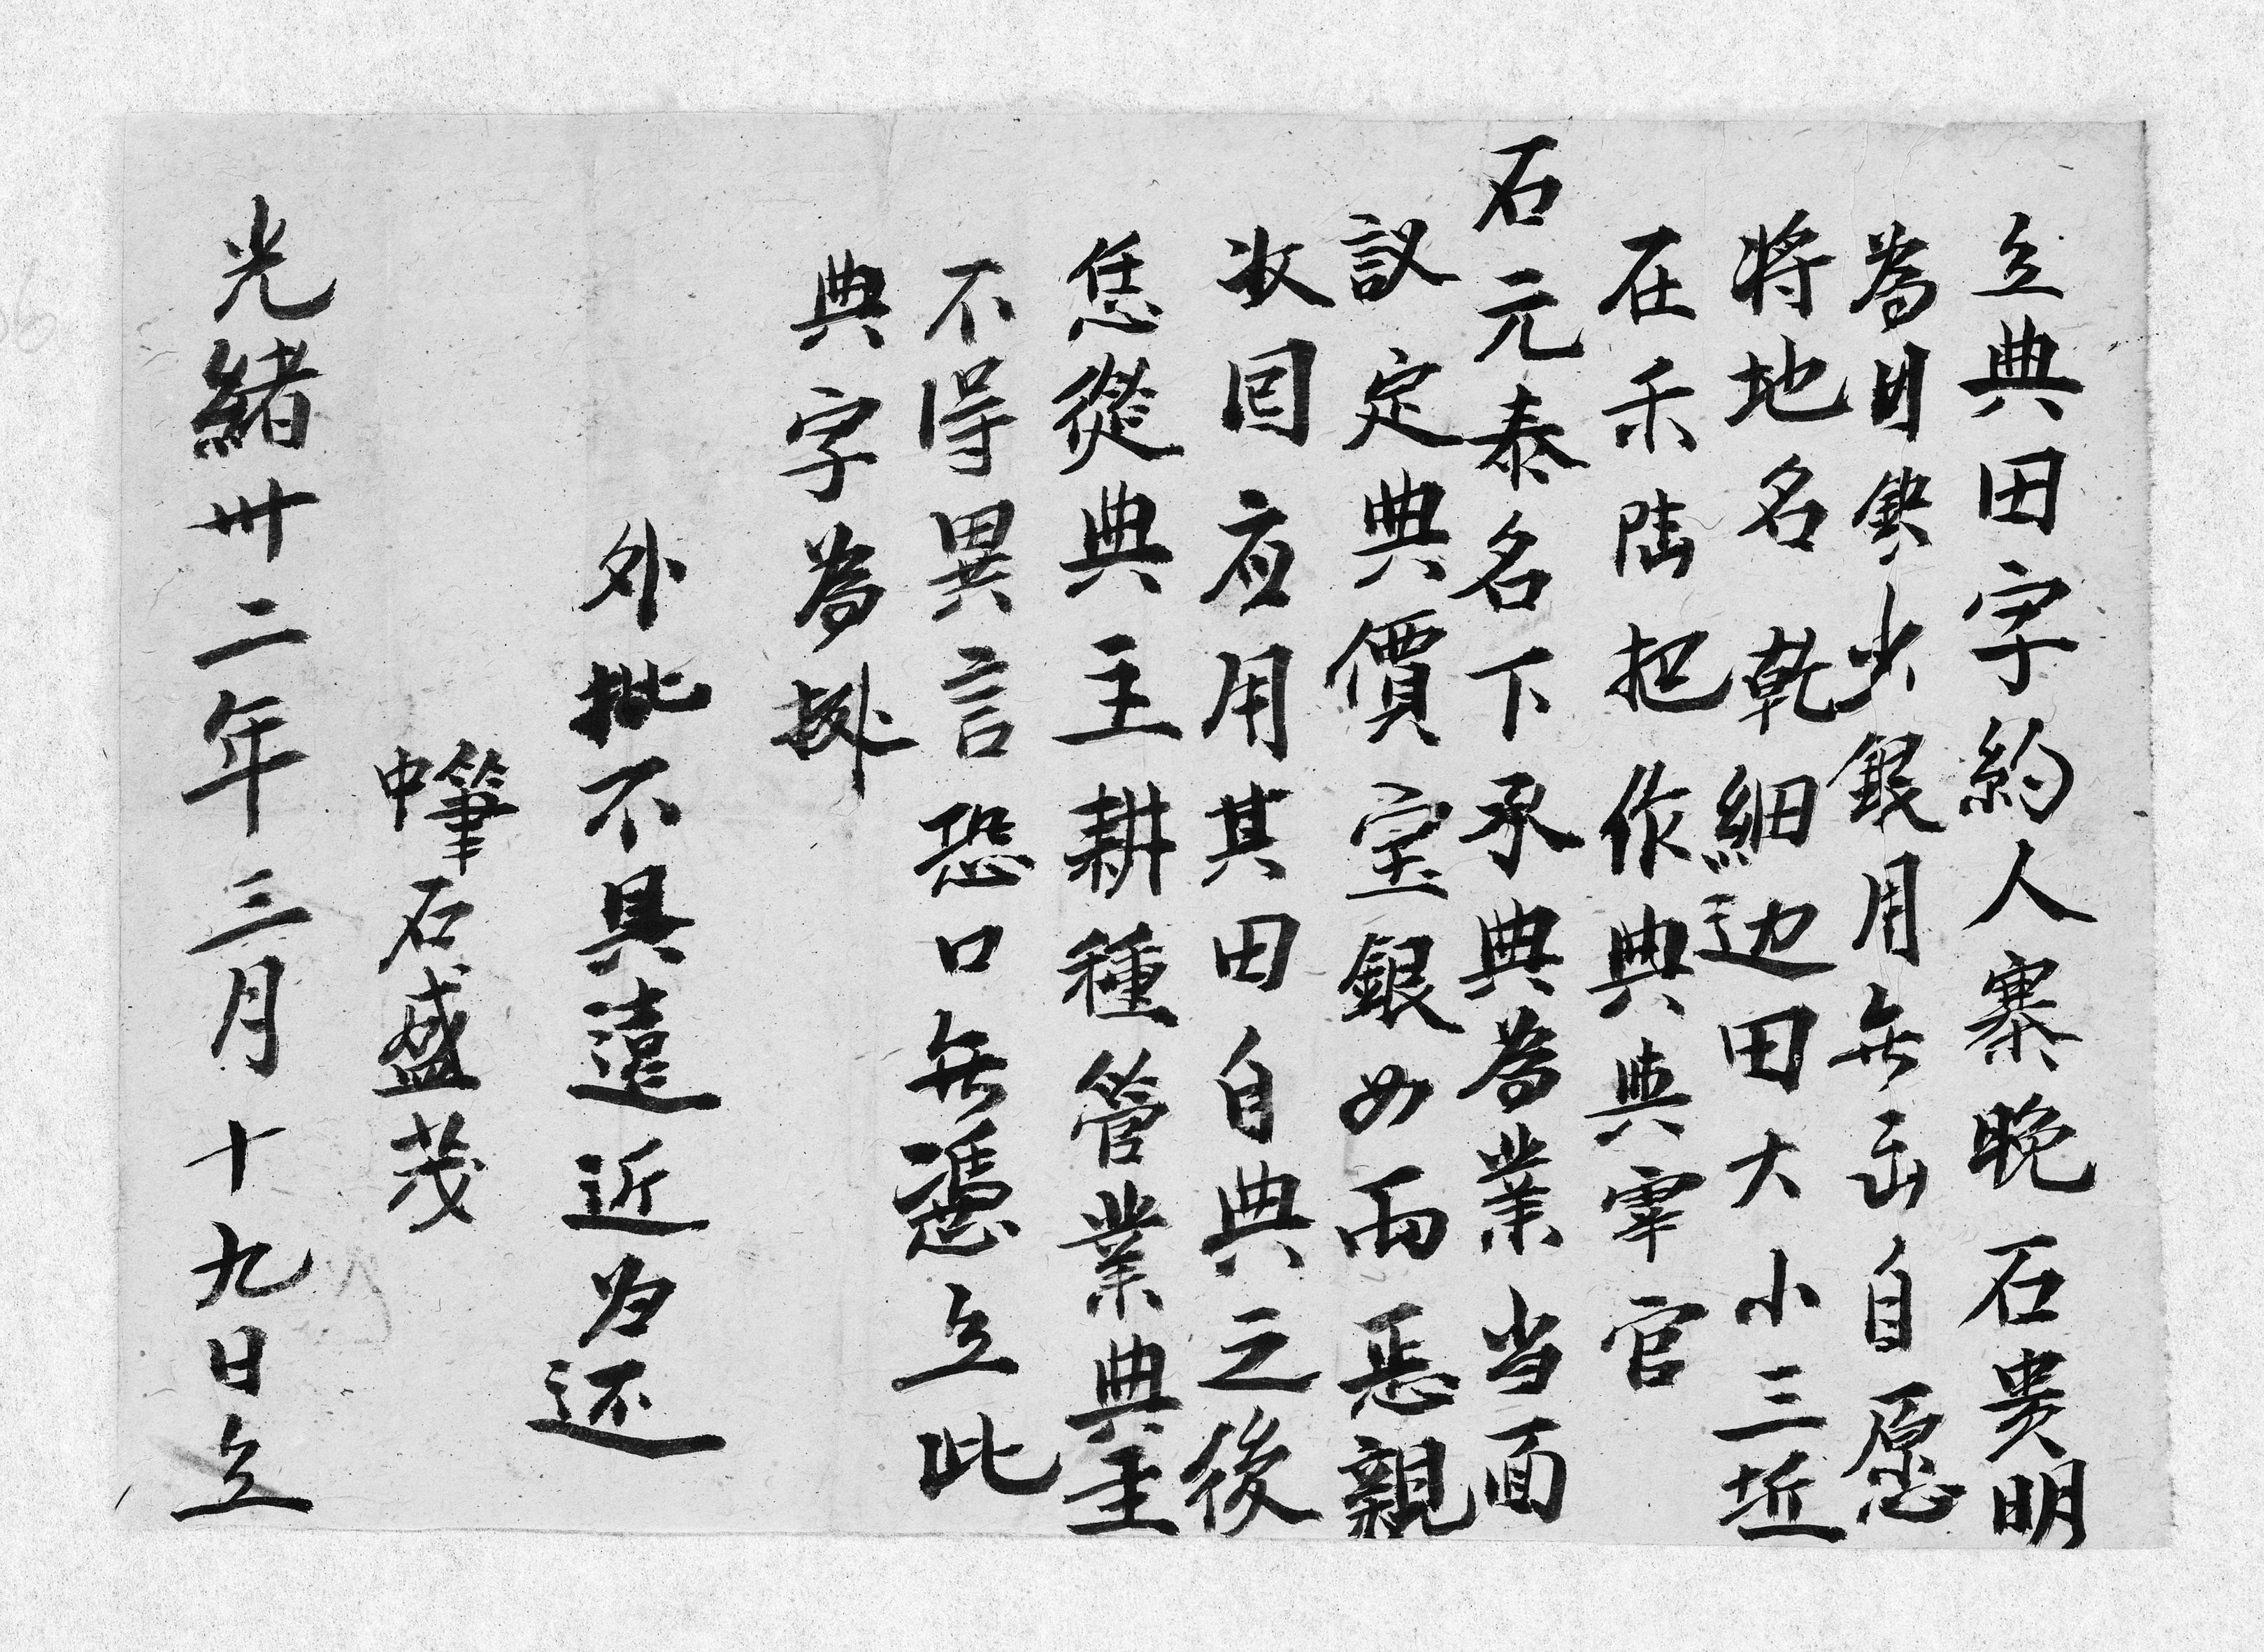 立典田字約人寨晚石贵明
為因缺少銀用無出自愿
将地名乾細边田大小三坵
在禾陆把作典與宰官
石元泰名下承典為業当面
議定典價宝銀四两恁親
收囙应用其田自典之後
恁從典主耕種管業典主
不得異言恐口無憑立此
典字為拠
外批不具遠近为还
中筆石盛茂
光緒卅二年三月十九日立